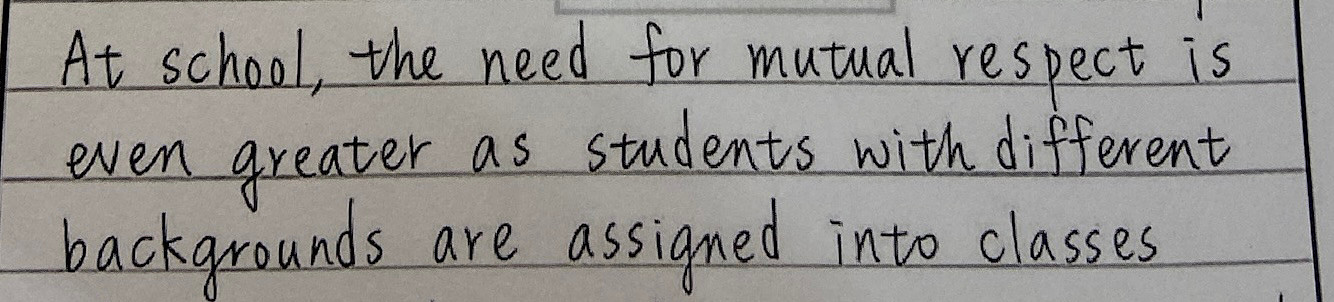 At school, the need for mutual respect is
even greater as students with different
backgrounds are assigned into classes